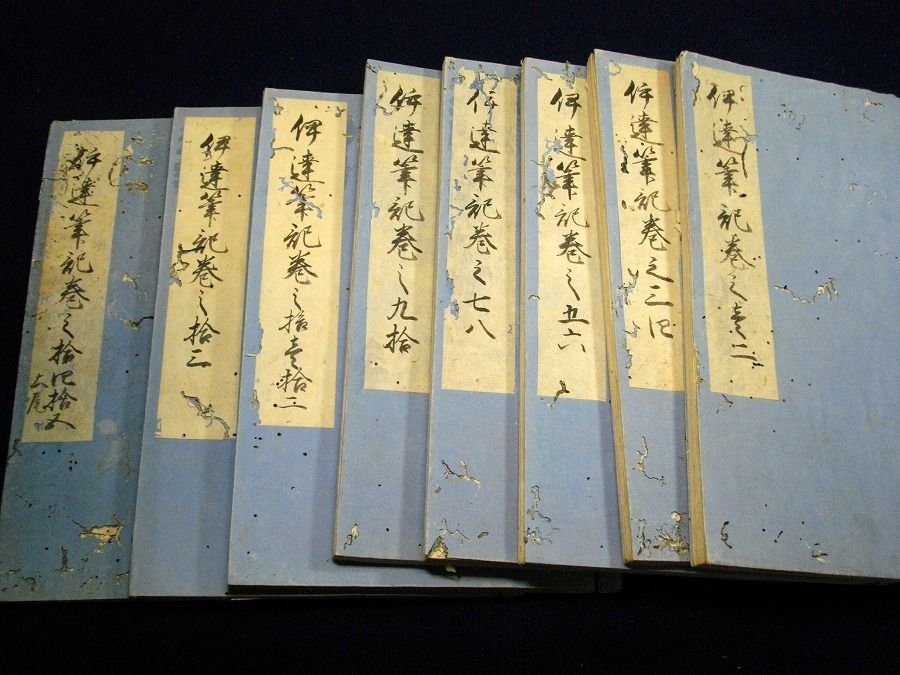 伊達筆記巻之壱二
伊達筆記巻之三四
伊達筆記巻之五六
伊達筆記巻之七八
伊達筆記巻之九拾
伊達筆記巻之拾壱拾二
伊達筆記巻之拾三
伊達筆記巻之拾四拾五
大尾